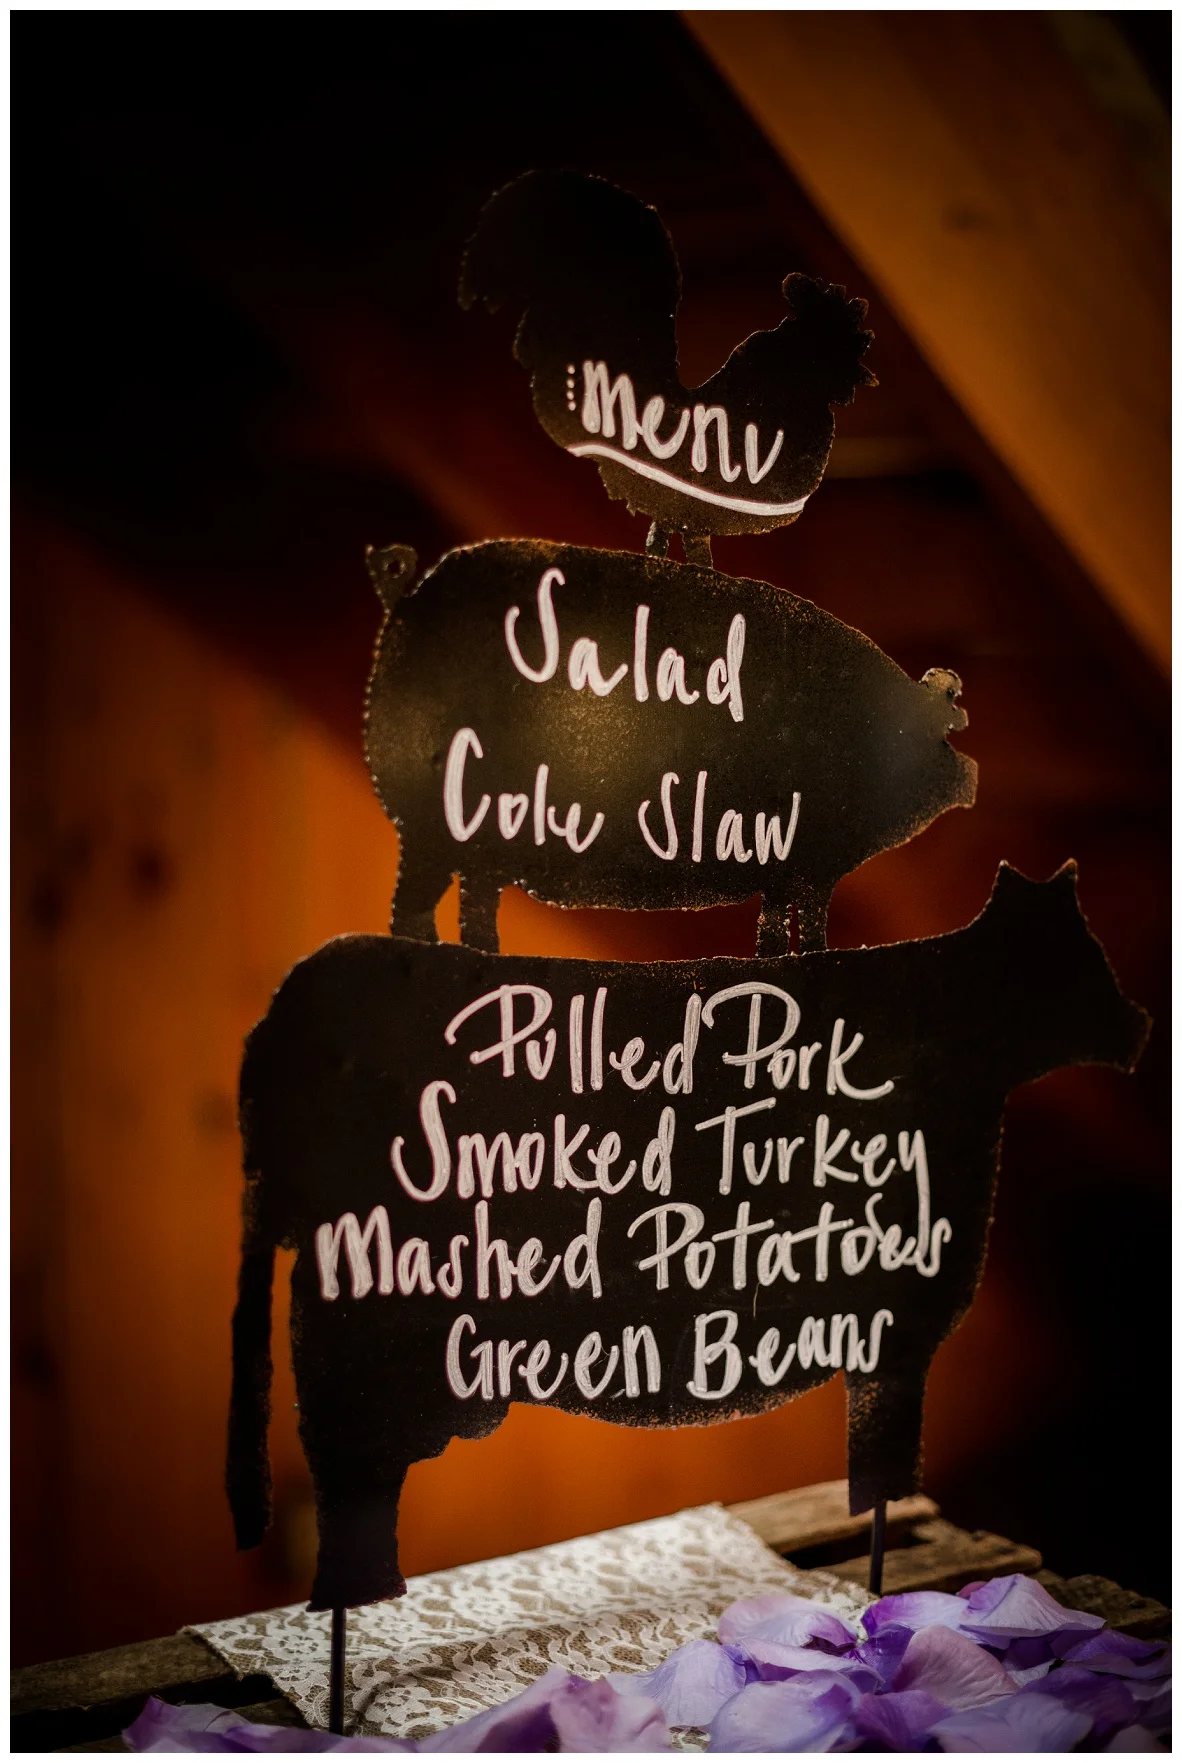 menu
Salad
Cole Slaw
Pulled Pork
Smoked Turkey
Mashed Potatoes
Green Beans